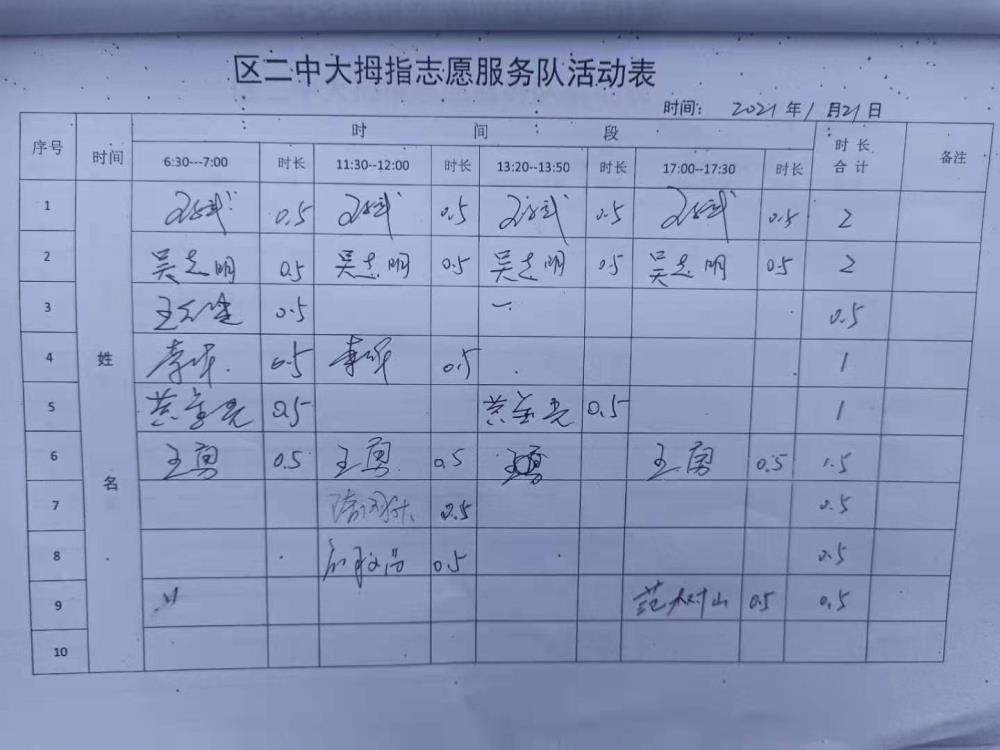 区二中大拇指志愿服务队活动表
时间： 2021 年 1 月 21 日
序号 时间 时 间 段 时 长 合 计 备注
6:30---7:00 时长 11:30--12:00 时长 13:20--13:50 时长 17:00--17:30 时长
1 0.5 0.5 0.5 0.5 2
2 吴志明 0.5 吴志明 0.5 吴志明 0.5 吴志明 0.5 2
3 0.5 0.5
姓
4 李华 0.5 李华 0.5 1
5 0.5 0.5 1
6 王勇 0.5 王勇 0.5 王勇 0.5 1.5
名
7 0.5 0.5
8 0.5 0.5
9 范树山 0.5 0.5
10